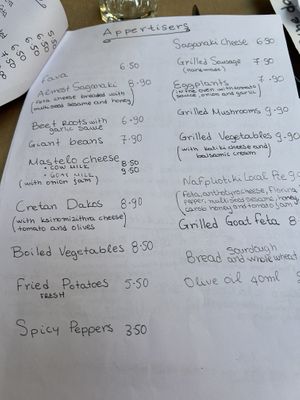 Appertisers
Fava 6.50
Almost Saganaki 8.90
(feta cheese breaded with
multiseed sesame and honey)
Beet Roots with 6.90
garlic sauce
Giant beans 7.90
Mastelo cheese
• COW MILK 8.50
• GOAT MILK 9.50
(with onion jam)
Cretan Dakos 8.90
(with ksinomizithra cheese)
(tomato and olives)
Boiled Vegetables 8.50
Fried Potatoes 5.50
FRESH
Spicy Peppers 3.50
Saganaki Cheese 6.90
Grilled Sausage 7.90
(handmade)
Eggplants 7.90
(in the oven with tomato
sauce, onion and garlic)
Grilled Mushrooms 9.90
Grilled Vegetables 9.90
(with katiki cheese and
balsamic cream)
Nafpliotiki Local Pie
(Feta, anthotyro cheese, Florina
pepper, multiseed sesame, honey
carob honey and tomato jam)
Grilled Goat feta 8
Bread Sourdough
and whole wheat
Olive oil 40ml